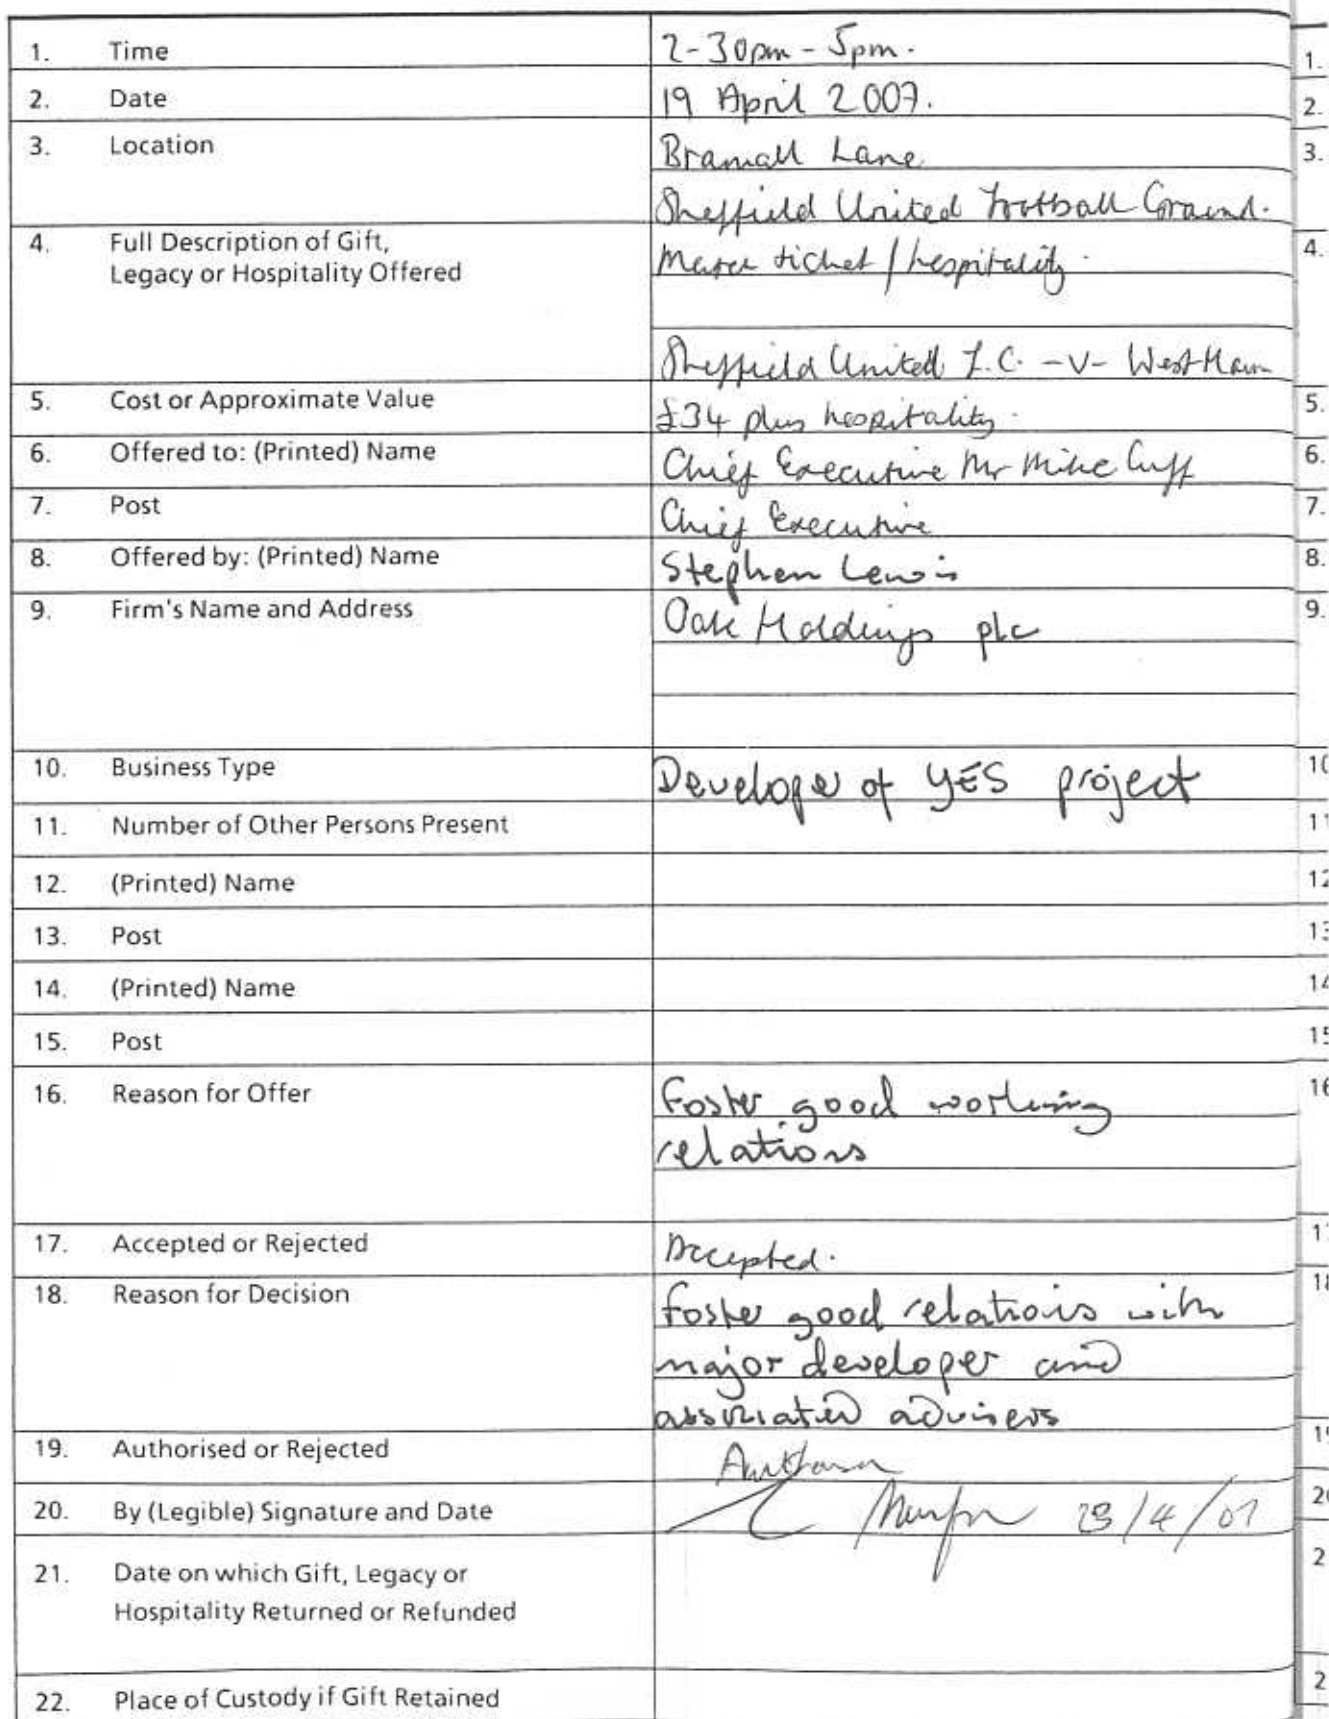 1. Time 2-30pm - 5pm.
2. Date 19 April 2007.
3. Location Bramall Lane
Sheffield United Football Ground.
4. Full Description of Gift, Match ticket / hospitality.
Legacy or Hospitality Offered
Sheffield United F.C. -v- West Ham
5. Cost or Approximate Value £34 plus hospitality.
6. Offered to: (Printed) Name Chief Executive Mr Mike Cuff
7. Post Chief Executive
8. Offered by: (Printed) Name Stephen Lewis
9. Firm's Name and Address Oak Holdings plc
10. Business Type Developer of YES project
11. Number of Other Persons Present
12. (Printed) Name
13. Post
14. (Printed) Name
15. Post
16. Reason for Offer Foster good working
relations
17. Accepted or Rejected Accepted.
18. Reason for Decision Foster good relations with
major developer and
associated advisers
19. Authorised or Rejected
20. By (Legible) Signature and Date /4/07
21. Date on which Gift, Legacy or
Hospitality Returned or Refunded
22. Place of Custody if Gift Retained
1.
2.
3.
4.
5.
6.
7.
8.
9.